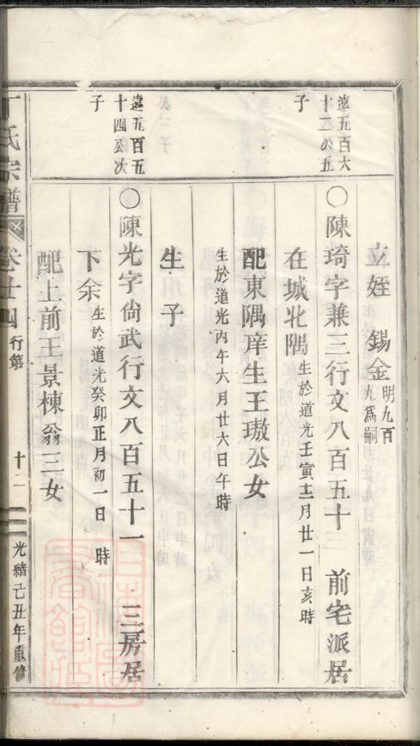 立姪 錫金 明九百九為嗣
遠五百六十二公五子
〇陳琦字兼三行文八百五十 前宅派居
在城北隅 生於道光壬寅十二月廿一日亥時
配東隅庠生王璈公女
生於道光丙午六月廿六日午時
生 子
遠五百五十四公次子
〇陳光字尙武行文八百五十一 三房居
下余 生於道光癸卯正月初一日 時
配上前王景棟翁三女
丁氏宗譜 卷十四 行第 十二 光緒己丑年重修